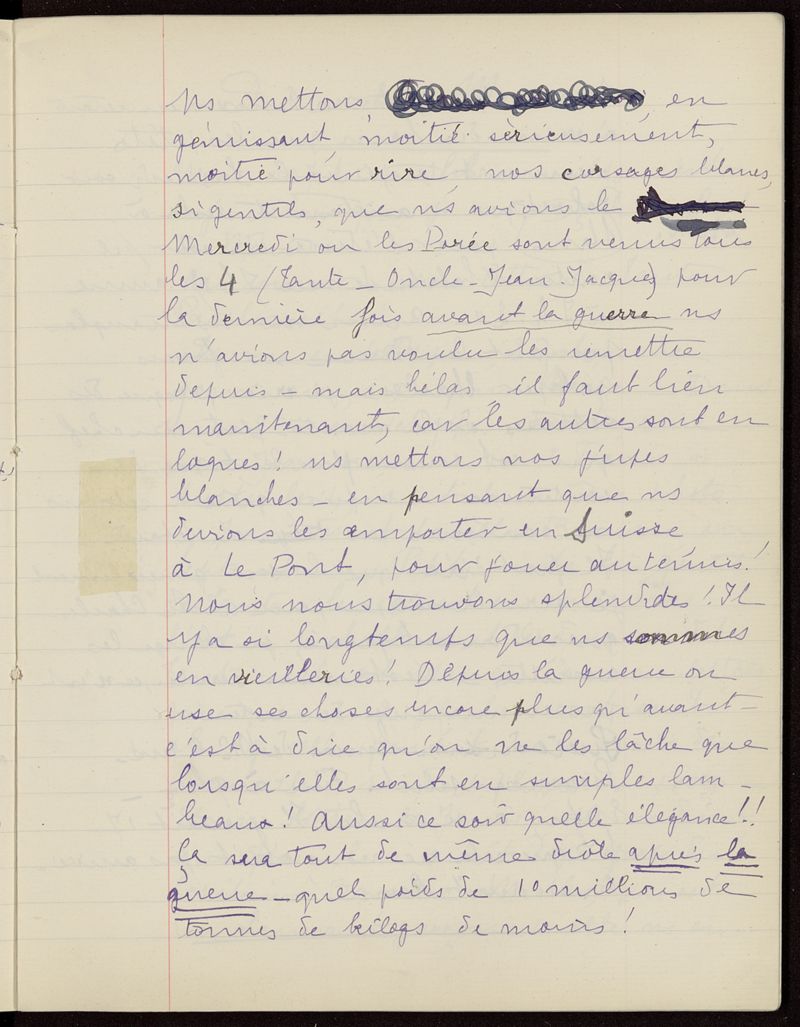 Ns mettons, en
gémissant, moitié sérieusement,
moitié pour rire, nos corsages blancs,
si gentils, que ns avions le
Mercredi ou les Porée sont venus tous
les 4 (Tante - Oncle - Jean - Jacques) pour
la dernière fois avant la guerre ns
n'avions pas voulu les remettre
depuis - mais hélas il faut bien
maintenant, car les autres sont en
loques! ns mettons nos jupes
blanches - en pensant que ns
devions les emporter en Suisse
à Le Pont, pour jouer au tennis!
Nous nous trouvons splendides! Il
y a si longtemps que ns sommes
en vieilleries! Depuis la guerre on
use ses choses encore plus qu'avant -
c'est à dire qu'on ne les lâche que
lorsqu'elles sont en simples lam-
beaux! Aussi ce soir quelle élégance!!
Ça sera tout de même drôle après la
guerre - quel poids de 10 millions de
tonnes de kilogs de moins!